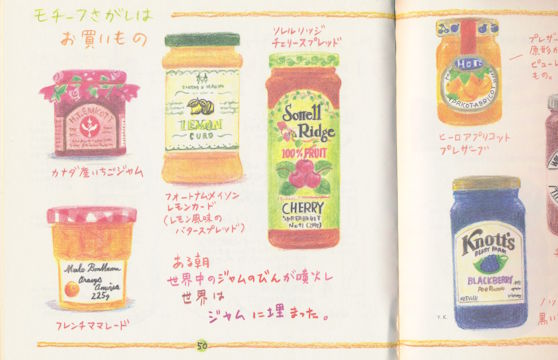 モチーフさがしは
お買いもの
カナダ産いちごジャム
LEMON
CURD
フォートナムメイソン
レモンカード
(レモン風味の
バタースプレッド)
ソレルリッジ
チェリースプレッド
Sorrell
Ridge
100% FRUIT
CHERRY
225g
フレンチママレード
ある朝
世界中のジャムのびんが噴火し
世界は
ジャムに埋まった。
50
Hero
ヒーロアプリコット
プレザーブ
プレザー
原形
ピュー
もの。
Knott's
BERRY FARM
BLACKBERRY
Y.K.
黒い